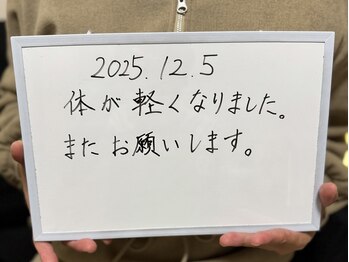 2025.12.5
体が軽くなりました。
またお願いします。